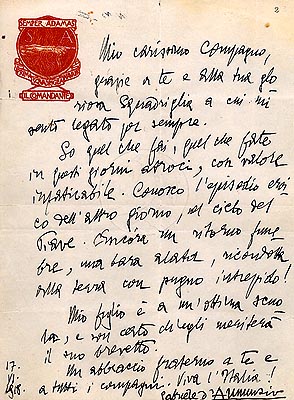 SEMPER ADAMAS
IL COMANDANTE
2
Mio carissimo Compagno,
grazie a te e alla tua glo
riosa Squadriglia a cui mi
sento legato per sempre.
So quel che fai, quel che fate
in questi giorni atroci, con valore
infaticabile. Conosco l'episodio eroi
co dell'altro giorno, nel cielo del
Piave. Ancóra un ritorno fune
bre, una bara alata, ricondotta
alla terra con pugno intrepido!
Mio figlio è a un'ottima scuo
la, e son certo ch'egli meriterà
il suo brevetto.
Un abbraccio fraterno a te e
a tutti i compagni. Viva l'Italia!
17.
1918.
Gabriele d'Annunzio